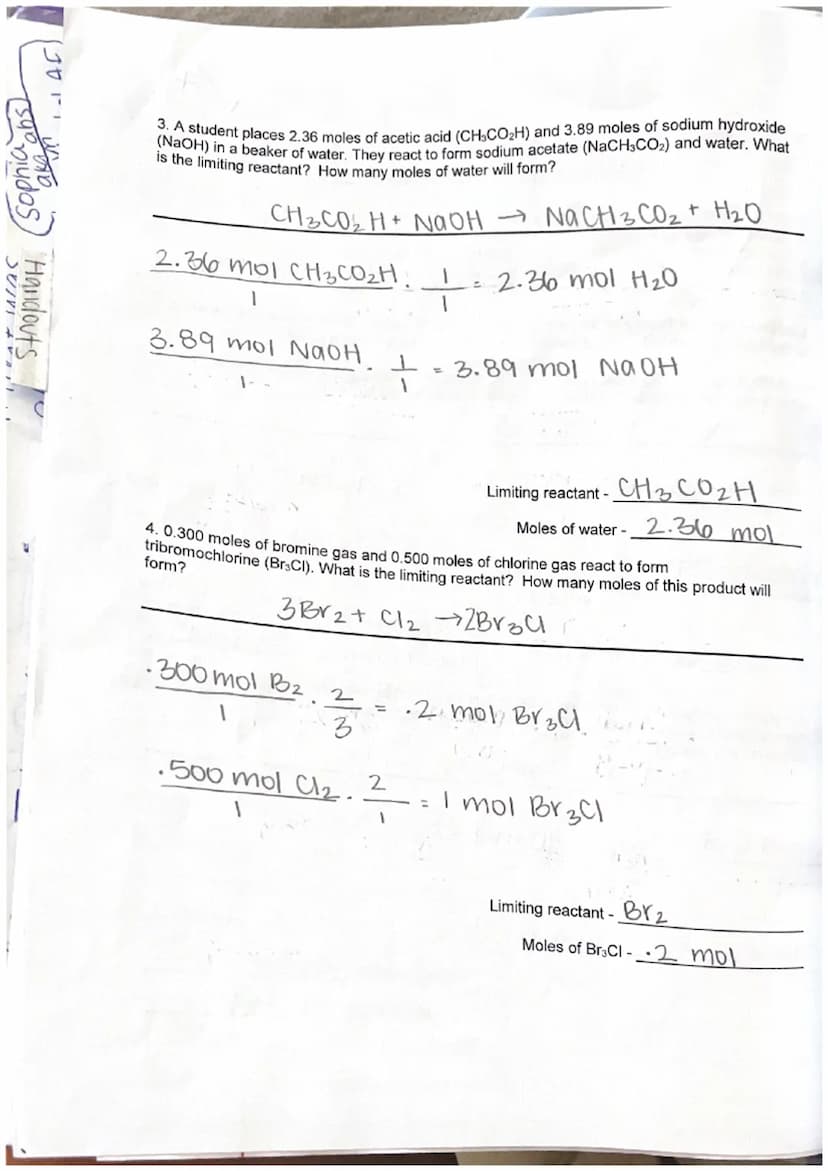 3. A student places 2.36 moles of acetic acid (CH₃CO₂H) and 3.89 moles of sodium hydroxide
(NaOH) in a beaker of water. They react to form sodium acetate (NaCH₃CO₂) and water. What
is the limiting reactant? How many moles of water will form?
CH₃CO₂H + NaOH → NaCH₃CO₂ + H₂O
2.36 mol CH₃CO₂H/1 · 1/1 = 2.36 mol H₂O
3.89 mol NaOH/1 · 1/1 = 3.89 mol NaOH
Limiting reactant - CH₃CO₂H
Moles of water - 2.36 mol
4. 0.300 moles of bromine gas and 0.500 moles of chlorine gas react to form
tribromochlorine (Br₃Cl). What is the limiting reactant? How many moles of this product will
form?
3Br₂ + Cl₂ → 2Br₃Cl
.300 mol B₂/1 · 2/3 = .2 mol Br₃Cl
.500 mol Cl₂/1 · 2/1 = 1 mol Br₃Cl
Limiting reactant - Br₂
Moles of Br₃Cl - .2 mol
Sophia
Handouts